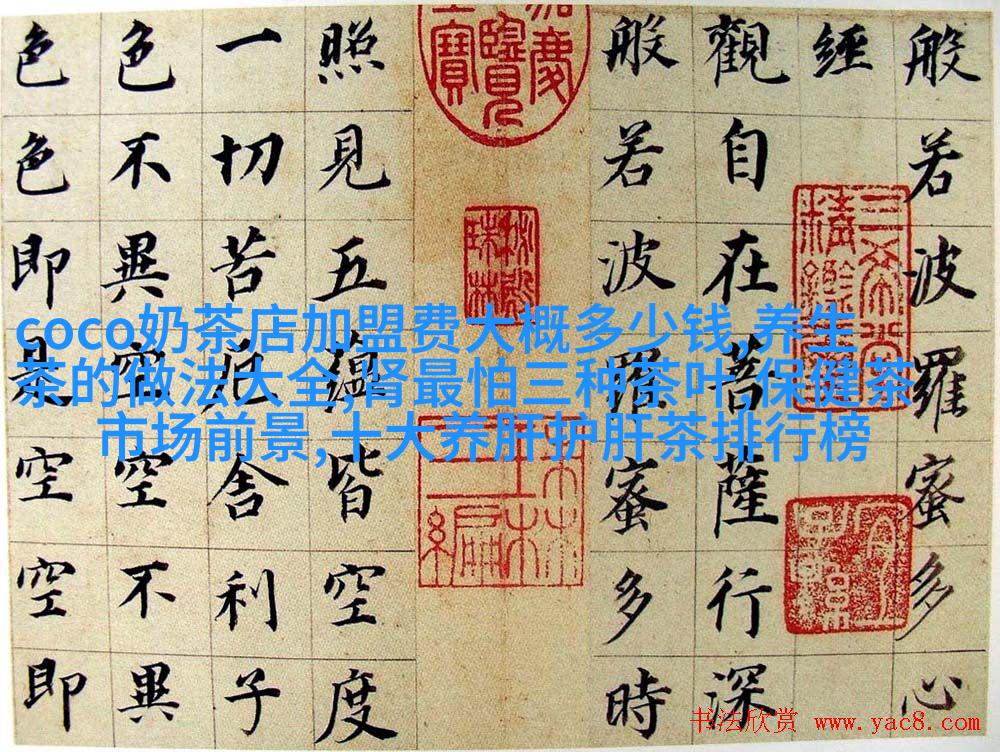 般若波羅蜜多心
經
觀自在菩薩行深
般若波羅蜜多時
照見五蘊皆空度
一切苦厄舍利子
色不異空空不異
色色即是空空即
三希堂精鑑璽
coco奶茶店加盟费大概多少钱,养生
茶的做法大全,肾最怕三种茶叶,保健茶
市场前景,十大养肝护肝茶排行榜
书法欣赏 www.yac8.com